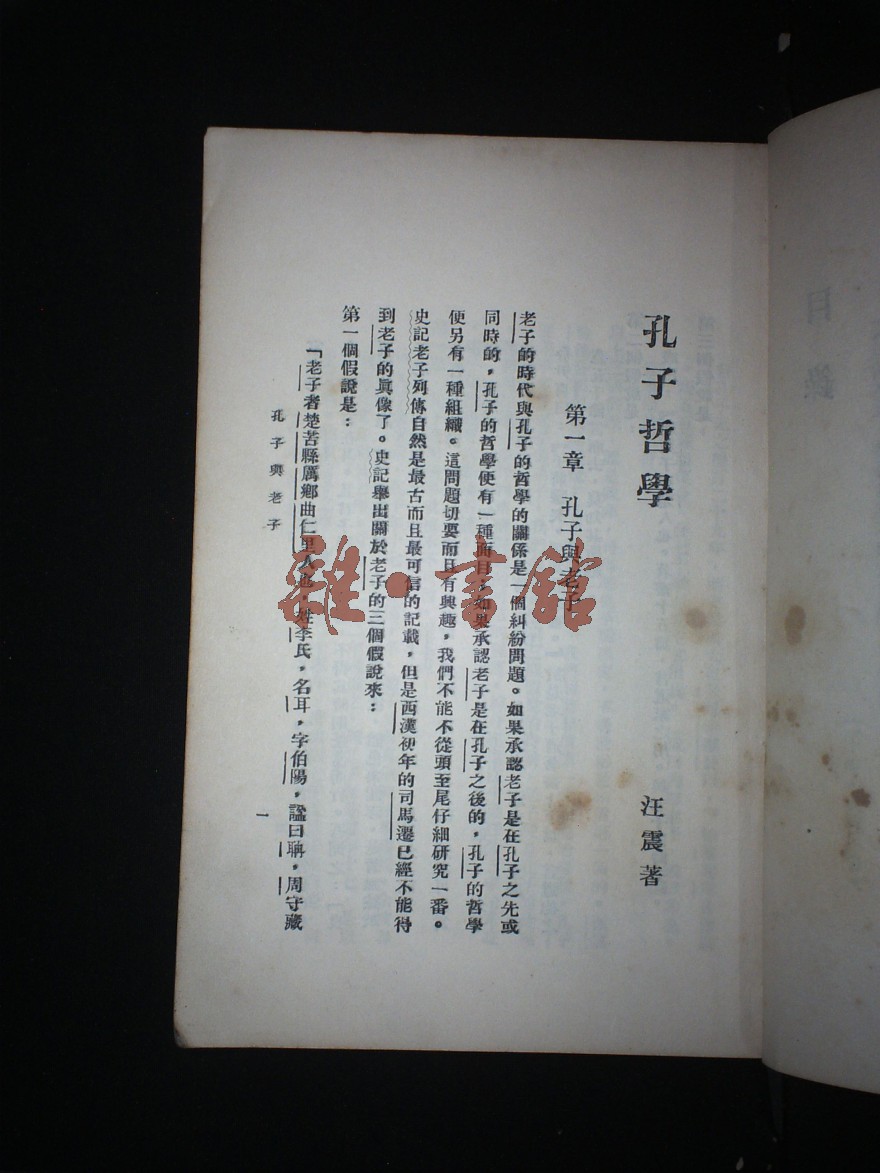 孔子哲學
汪震著
第一章 孔子與老子
老子的時代與孔子的哲學的關係是一個糾紛問題。如果承認老子是在孔子之先或
同時的，孔子的哲學便有一種面目；如果承認老子是在孔子之後的，孔子的哲學
便另有一種組織。這問題切要而且有興趣，我們不能不從頭至尾仔細研究一番。
史記老子列傳自然是最古而且最可信的記載，但是西漢初年的司馬遷已經不能得
到老子的眞像了。史記舉出關於老子的三個假說來：
第一個假說是：
「老子者楚苦縣厲鄉曲仁里人也，姓李氏，名耳，字伯陽，謚曰聃，周守藏
孔子與老子
一
雜·書館
目錄